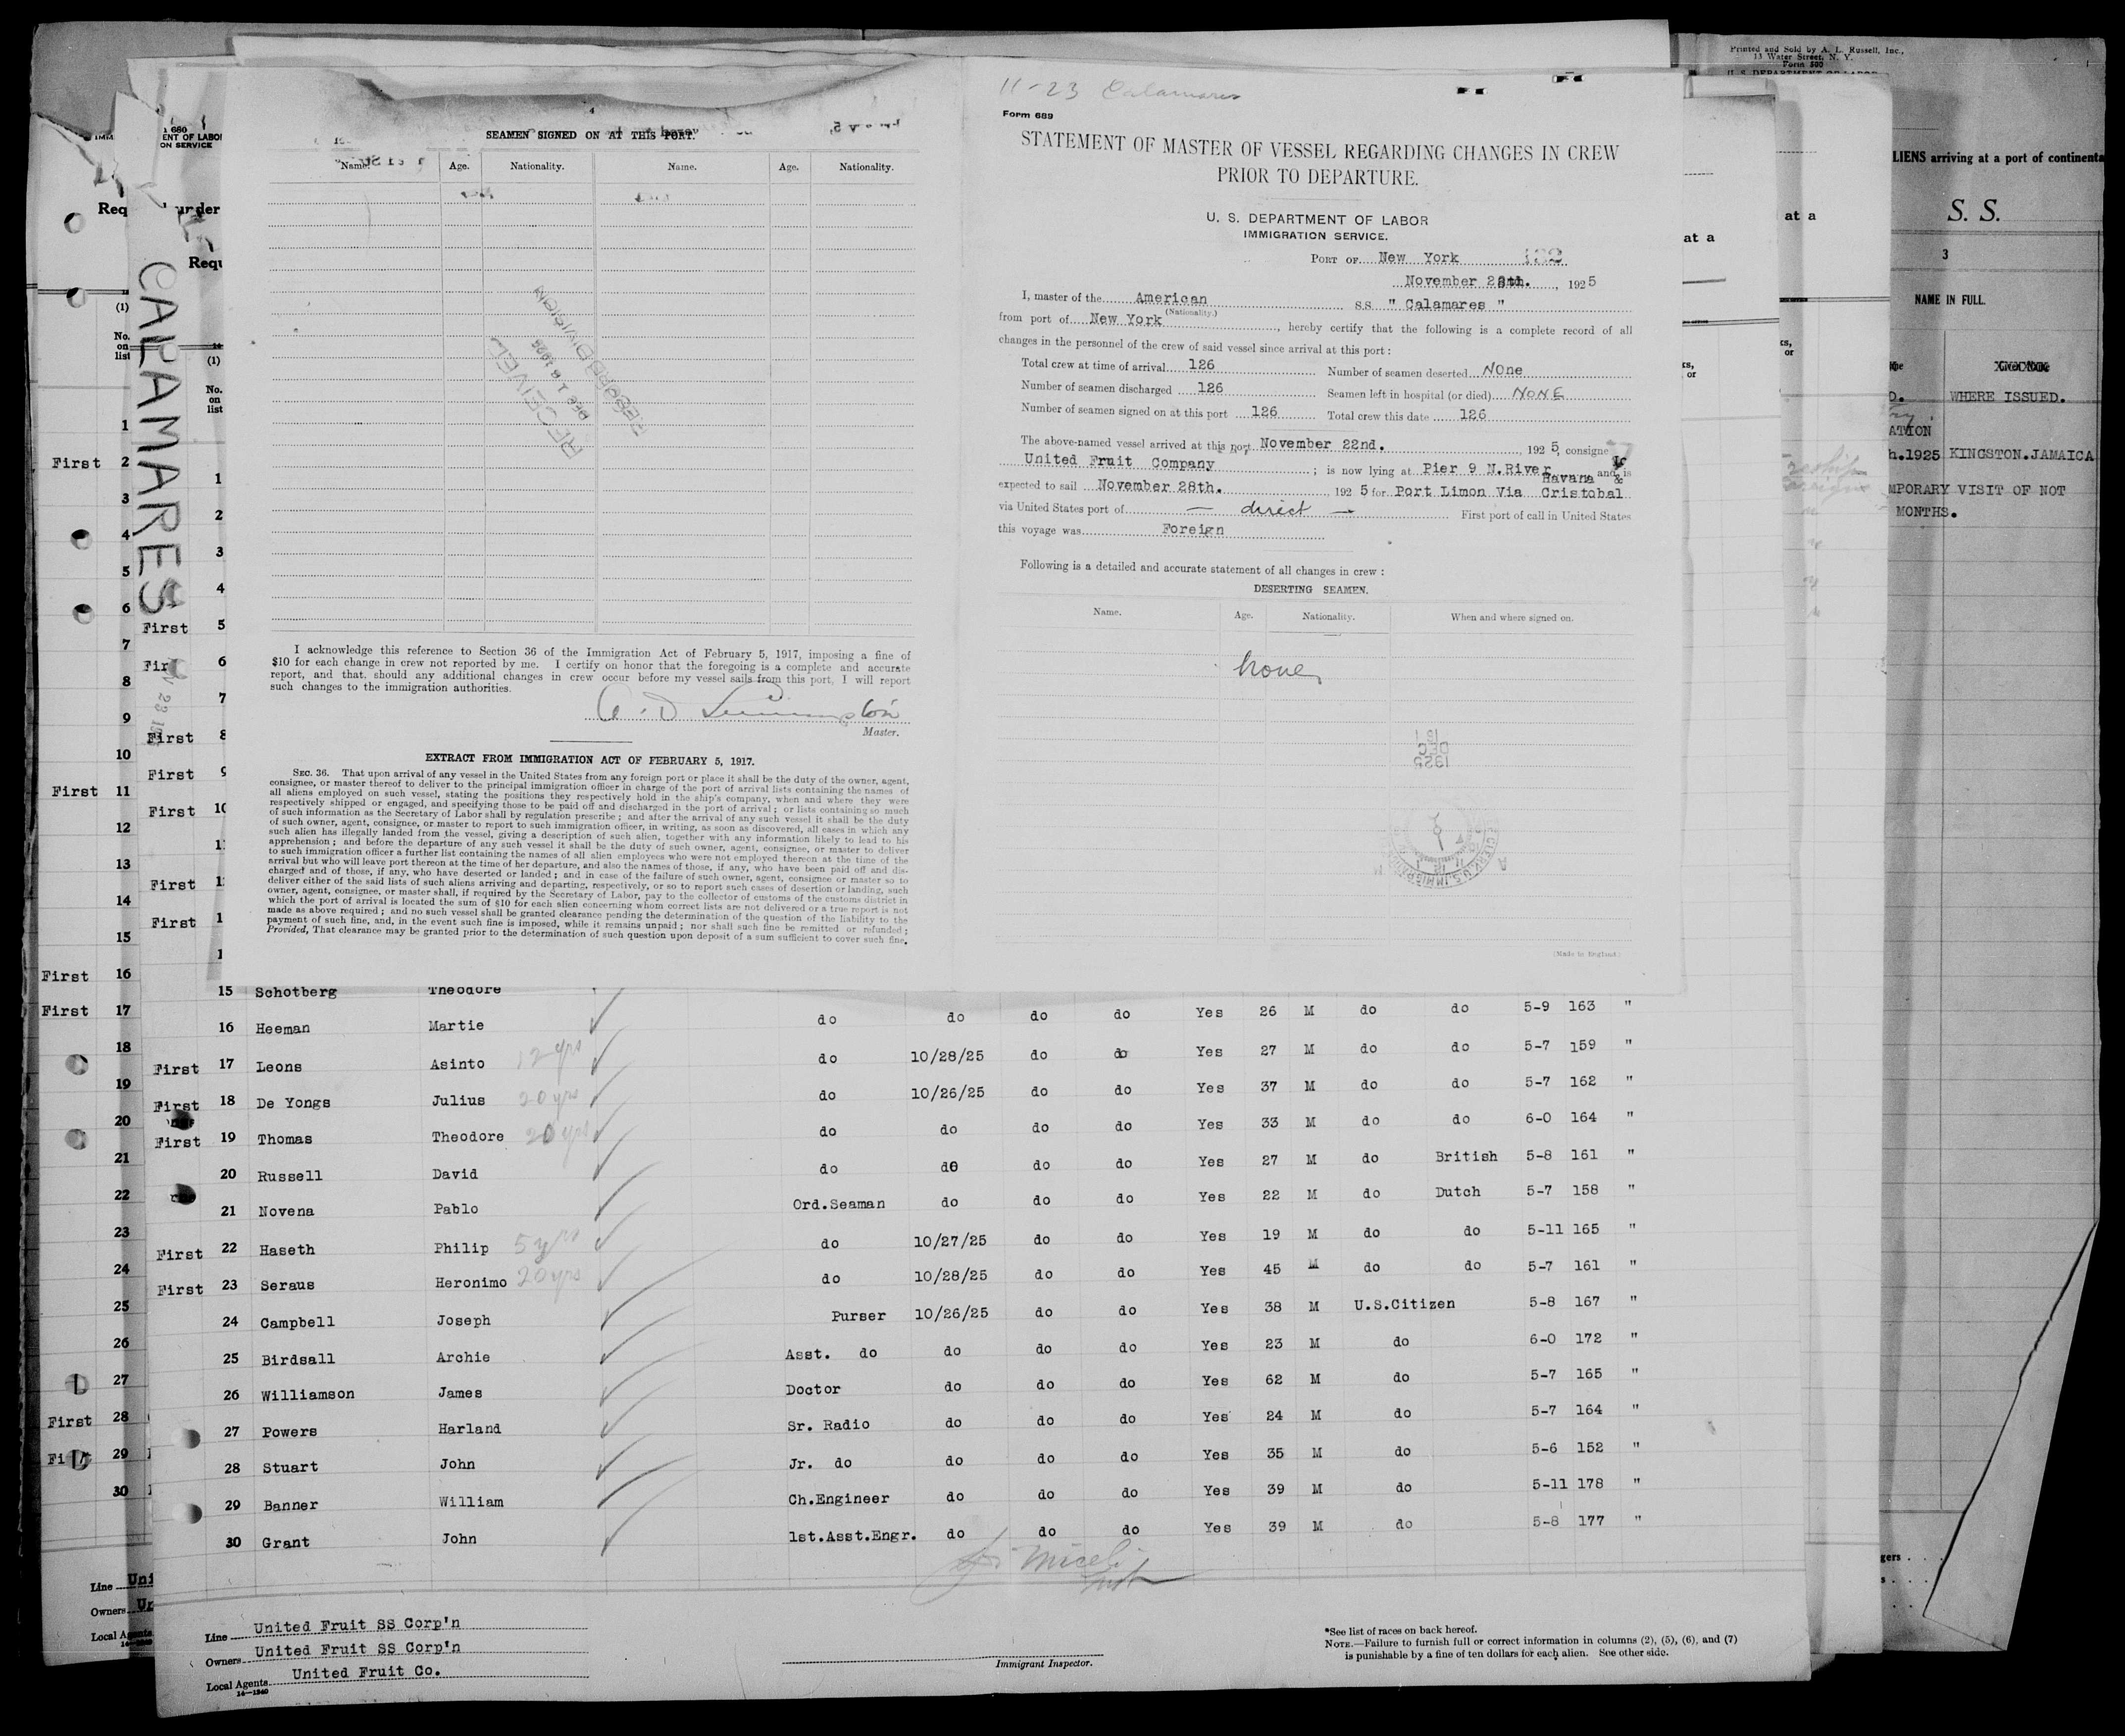 SEAMEN SIGNED ON AT THIS PORT.
Name. Age. Nationality. Name. Age. Nationality.
I acknowledge this reference to Section 36 of the Immigration Act of February 5, 1917, imposing a fine of
$10 for each change in crew not reported by me. I certify on honor that the foregoing is a complete and accurate
report, and that, should any additional changes in crew occur before my vessel sails from this port, I will report
such changes to the immigration authorities.
Master.
EXTRACT FROM IMMIGRATION ACT OF FEBRUARY 5, 1917.
SEC. 36. That upon arrival of any vessel in the United States from any foreign port or place it shall be the duty of the owner, agent,
consignee, or master thereof to deliver to the principal immigration officer in charge of the port of arrival lists containing the names of
all aliens employed on such vessel, stating the positions they respectively hold in the ship's company, when and where they were
respectively shipped or engaged, and specifying those to be paid off and discharged in the port of arrival; or lists containing so much
of such information as the Secretary of Labor shall by regulation prescribe; and after the arrival of any such vessel it shall be the duty
of such owner, agent, consignee, or master to report to such immigration officer, in writing, as soon as discovered, all cases in which any
such alien has illegally landed from the vessel, giving a description of such alien, together with any information likely to lead to his
apprehension; and before the departure of any such vessel it shall be the duty of such owner, agent, consignee, or master to deliver
to such immigration officer a further list containing the names of all alien employees who were not employed thereon at the time of the
arrival but who will leave port thereon at the time of her departure, and also the names of those, if any, who have been paid off and dis-
charged and of those, if any, who have deserted or landed; and in case of the failure of such owner, agent, consignee or master so to
deliver either of the said lists of such aliens arriving and departing, respectively, or so to report such cases of desertion or landing, such
owner, agent, consignee, or master shall, if required by the Secretary of Labor, pay to the collector of customs of the customs district in
which the port of arrival is located the sum of $10 for each alien concerning whom correct lists are not delivered or a true report is not
made as above required; and no such vessel shall be granted clearance pending the determination of the question of the liability to the
payment of such fine, and, in the event such fine is imposed, while it remains unpaid; nor shall such fine be remitted or refunded;
Provided, That clearance may be granted prior to the determination of such question upon deposit of a sum sufficient to cover such fine.
11-23 Calamares
Form 689
STATEMENT OF MASTER OF VESSEL REGARDING CHANGES IN CREW
PRIOR TO DEPARTURE.
U. S. DEPARTMENT OF LABOR
IMMIGRATION SERVICE.
PORT OF New York
November 28th., 1925
I, master of the American S.S. " Calamares "
(Nationality.)
from port of New York, hereby certify that the following is a complete record of all
changes in the personnel of the crew of said vessel since arrival at this port:
Total crew at time of arrival 126 Number of seamen deserted NOne
Number of seamen discharged 126 Seamen left in hospital (or died) NONE
Number of seamen signed on at this port 126 Total crew this date 126
The above-named vessel arrived at this port November 22nd. , 1925, consigne
United Fruit Company ; is now lying at Pier 9 N.River and is
Havana &
expected to sail November 28th. , 1925 for Port Limon Via Cristobal
via United States port of — direct — First port of call in United States
this voyage was Foreign
Following is a detailed and accurate statement of all changes in crew:
DESERTING SEAMEN.
Name. Age. Nationality. When and where signed on.
None
(Made in England.)
RECEIVED
DEC 1 1925
DEC
1925
CALAMARES
Printed and Sold by A. L. Russell, Inc.,
13 Water Street, N. Y.
Form 500
LIENS arriving at a port of continenta
S. S.
3
NAME IN FULL.
WHERE ISSUED.
h.1925 KINGSTON.JAMAICA
MPORARY VISIT OF NOT
MONTHS.
at a
at a
15 Schotberg Theodore
16 Heeman Martie do do do do Yes 26 M do do 5-9 163 "
First 17 Leons Asinto 12 yrs do 10/28/25 do do Yes 27 M do do 5-7 159 "
First 18 De Yongs Julius 20 yrs do 10/26/25 do do Yes 37 M do do 5-7 162 "
First 19 Thomas Theodore 20 yrs do do do do Yes 33 M do do 6-0 164 "
20 Russell David do do do do Yes 27 M do British 5-8 161 "
21 Novena Pablo Ord.Seaman do do do Yes 22 M do Dutch 5-7 158 "
First 22 Haseth Philip 5 yrs do 10/27/25 do do Yes 19 M do do 5-11 165 "
First 23 Seraus Heronimo 20 yrs do 10/28/25 do do Yes 45 M do do 5-7 161 "
24 Campbell Joseph Purser 10/26/25 do do Yes 38 M U.S.Citizen 5-8 167 "
25 Birdsall Archie Asst. do do do do Yes 23 M do 6-0 172 "
26 Williamson James Doctor do do do Yes 62 M do 5-7 165 "
27 Powers Harland Sr. Radio do do do Yes 24 M do 5-7 164 "
28 Stuart John Jr. do do do do Yes 35 M do 5-6 152 "
29 Banner William Ch.Engineer do do do Yes 39 M do 5-11 178 "
30 Grant John 1st.Asst.Engr. do do do Yes 39 M do 5-8 177 "
Line United Fruit SS Corp'n
Owners United Fruit SS Corp'n
Local Agents United Fruit Co.
14—1240
Immigrant Inspector.
*See list of races on back hereof.
NOTE.—Failure to furnish full or correct information in columns (2), (5), (6), and (7)
is punishable by a fine of ten dollars for each alien. See other side.